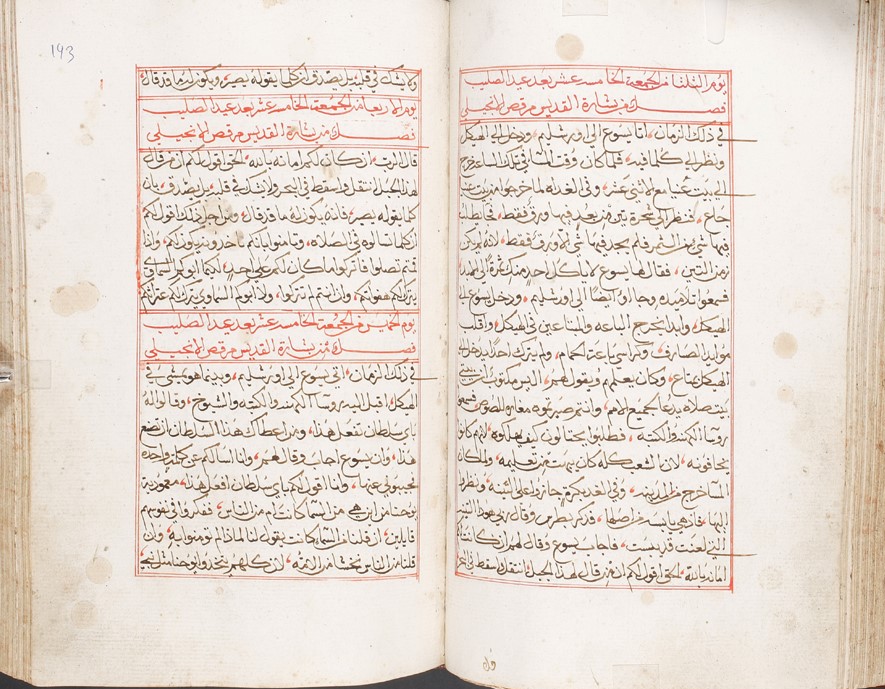 يوم الثلثا من الجمعة الخامسة عشر بعد عيد الصليب
فصل من بشارة القديس مرقص الانجيلي
في ذلك الزمان، اتا يسوع الى اورشليم، ودخل الى الهيكل
ونظر الى كلما فيه، فلما كان وقت المسا في تلك الساعه خرج
الى بيت عنيا مع الاثني عشر، وفي الغد لما خرجوا من بيت عنيا
جاع، فنظر الى شجرة تين من بعد فيها ورق فقط، فجا لطلب
فيها شي من الثمر فلم يجد فيها شي الا ورق فقط، لانه لم يكن
زمن التين، فقال لها يسوع لا ياكل احد منك ثمرة الى الابد
فسمعوا تلاميذه وجاوا ايضا الى اورشليم، ودخل يسوع الى
الهيكل، وابدا يخرج الباعه والمبتاعين في الهيكل، واقلب
موايد الصيارف وكراسي باعة الحمام، ولم يترك احدا يدخل الى
الهيكل بمتاع، وكان يعلمهم ويقول لهم، اليس مكتوب ان بيتي
بيت صلاه يدعا لجميع الامم، وانتم صيرتموه مغاره للصوص فسمعوا
روسا الكهنه والكتبه، فطلبوا يحتالون كيف يهلكوه، لانهم كانوا
يخافونه، لان الشعب كله كان يبهت من تعليمه، ولما كان
المسا خرج من المدينه، وفي الغد بكرة هم جازوا على التينه، ونظروا
اليها، فاذ هي يابسه من اصلها، فذكر بطرس وقال ربي هوذا التينه
التي لعنت قد يبست، فاجاب يسوع وقال لهم ان كانت لكم
امانه بالله، الحق اقول لكم ان من قال لهذا الجبل انتقل واسقط في البحر
193
ولا يشك في قلبه بل يصدق ان كلما يقوله يصير، ويكون له ما قد قال
يوم الاربعا من الجمعة الخامسة عشر بعد عيد الصليب
فصل من بشارة القديس مرقص الانجيلي
قال الرب، ان كان لكم امانه بالله، الحق اقول لكم ان من قال
لهذا الجبل انتقل واسقط في البحر ولا يشك في قلبه بل يصدق بان
كلما يقوله يصير، فانه يكون له ما قد قال، ومن اجل ذلك اقول لكم
ان كلما تسالوه في الصلاه، وتامنوا بانكم تاخذون يكون لكم، واذا
قمتم تصلوا فاتركوا ما كان لكم على احد، لكيما ابوكم السماوي
يترك لكم هفواتكم، وان انتم لم تتركوا، ولا ابوكم السماوي يترك لكم عثراتكم
يوم الخميس من الجمعة الخامسة عشر بعد عيد الصليب
فصل من بشارة القديس مرقص الانجيلي
في ذلك الزمان، اتى يسوع الى اورشليم، وبينما هو يمشي في
الهيكل، اقبل اليه روسا الكهنه والكتبه والشيوخ، وقالوا له
باي سلطان تفعل هذا، ومن اعطاك هذا السلطان ان تصنع
هذا، وان يسوع اجاب وقال لهم، وانا اسالكم عن كلمة واحده
تجيبوني عنها، وانا اقول لكم باي سلطان افعل هذا، معمودية
يوحنا من اين هي، من السما كانت ام من الناس، ففكروا في نفوسهم
قايلين، ان قلنا من السما كانت يقول لنا لماذا لم تومنوا به، وان
قلنا من الناس نخشا من الامه، لان كلهم يتخذوا يوحنا مثل نبي